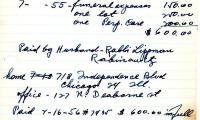 7- -55- funeral expenses 150.00
one lot 250.00
one Perp. Care 200.00
$600.00
Paid by Husband - Rabbi Lipman
Rabinowitz
home 718 Independence Blvd
Chicago 24 Ill.
office - 127 N Dearborn st
Paid 2-16-56 #7485 $600.00 in full